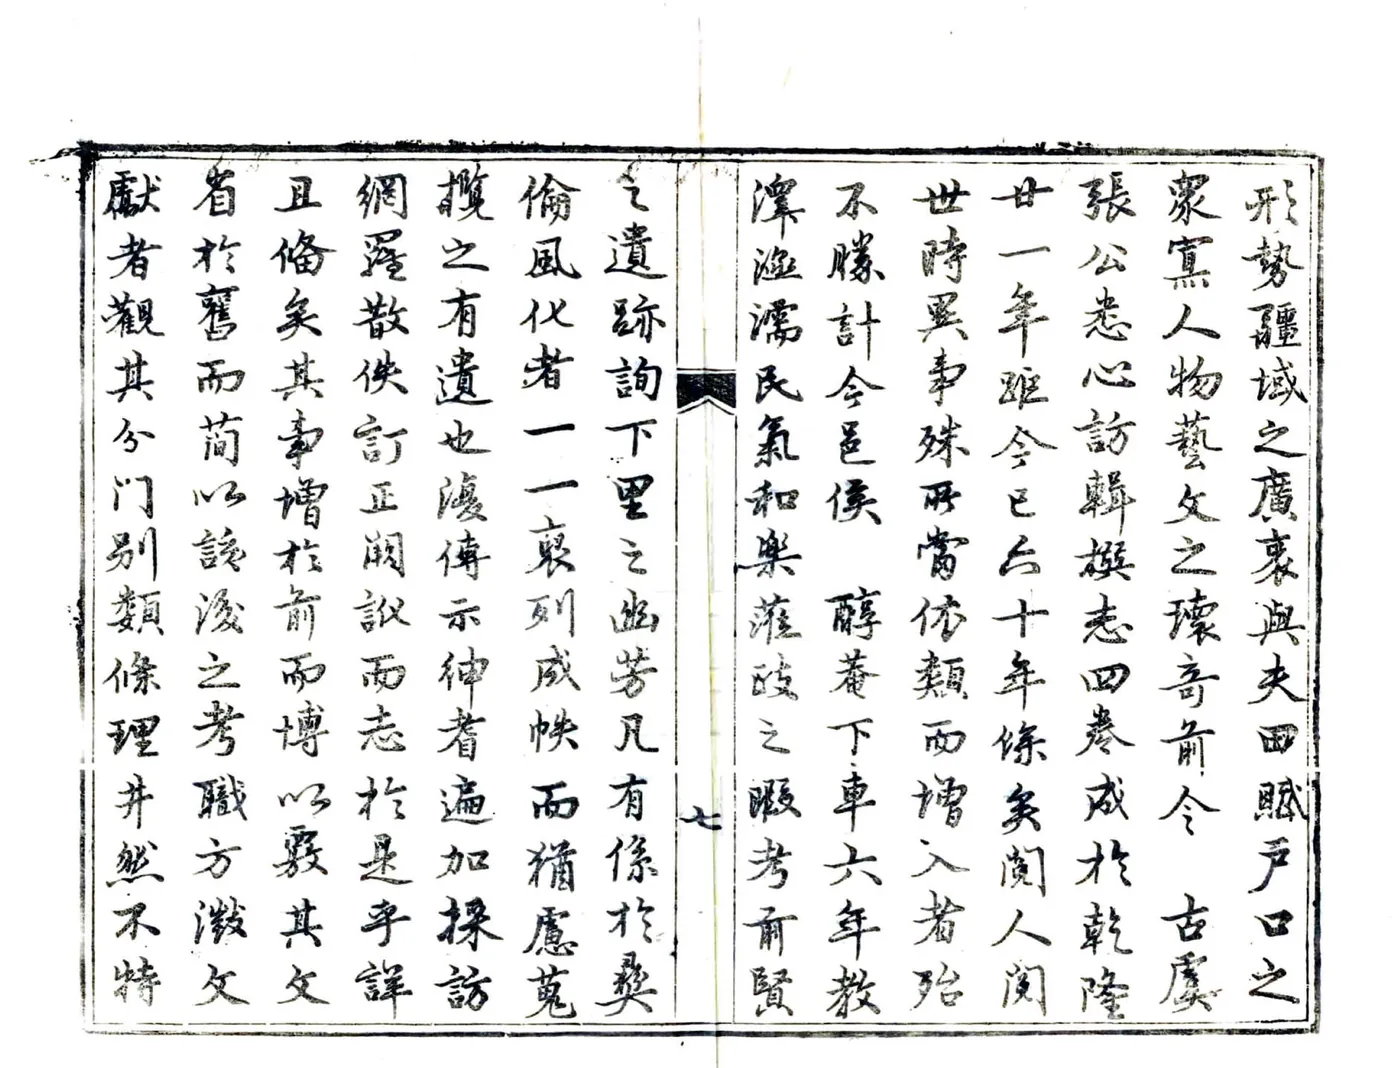 形勢疆域之廣袤與夫田賦户口之
衆寡人物藝文之瓌奇前令 古虞
張公悉心訪輯撰志四卷成於乾隆
廿一年距今已六十年餘矣閱人閱
世時異事殊所當依類而增入者殆
不勝計今邑侯 醇菴下車六年教
澤涵濡民氣和樂蒞政之暇考前賢
七
之遺跡詢下里之幽芳凡有係於彝
倫風化者一一裒列成帙而猶慮蒐
攬之有遺也復傳示紳耆遍加採訪
網羅散佚訂正闕訛而志於是乎詳
且備矣其事增於前而博以覈其文
省於舊而簡以該後之考職方徵文
獻者觀其分门别類條理井然不特